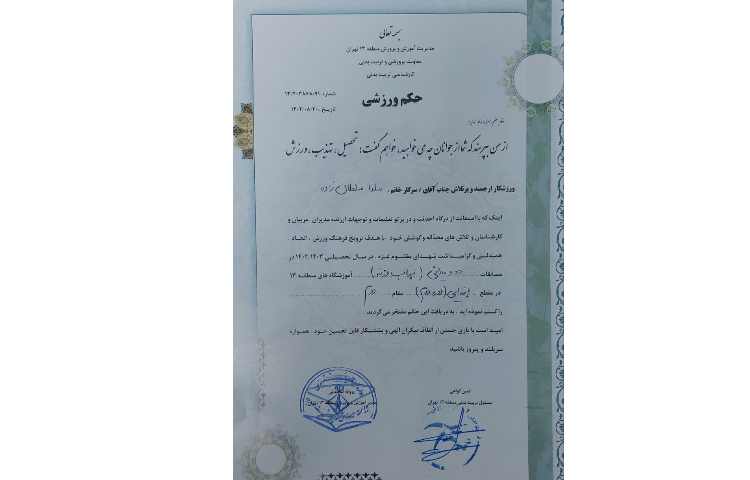 بسمه تعالی
مدیریت آموزش و پرورش منطقه ۱۳ تهران
معاونت پرورشی و تربیت بدنی
کارشناسی تربیت بدنی
شماره
حکم ورزشی
تاریخ ۱۴۰۲/۰۸/۲۰
از من بپرسند که شما از جوانان چه می خواهید، خواهم گفت: تحصیل، تهذیب، ورزش
ورزشکار ارجمند و پرتلاش جناب آقای / سرکار خانم
اینک که با استعانت از درگاه احدیت و در پرتو تعلیمات و توجهات ارزنده مدیران، مربیان و
کارشناسان و تلاش های مجدانه و کوشش خود با هدف ترویج فرهنگ ورزش، اتحاد،
همدلی و گرامیداشت شهدای مظلوم غزه، در سال تحصیلی ۱۴۰۳-۱۴۰۲ در
مسابقات آموزشگاه های منطقه ۱۳
در مقطع ابتدایی (دوره دوم) مقام دوم
را کسب نموده اید، به دریافت این حکم مفتخر می گردید.
امید است با یاری جستن از الطاف بیکران الهی و پشتکار قابل تحسین خود، همواره
سربلند و پیروز باشید.
مسئول تربیت بدنی منطقه ۱۳ تهران